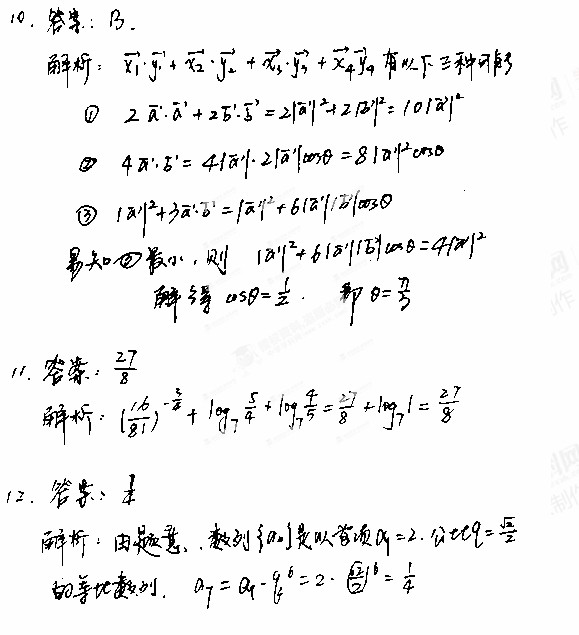 10. 答案: B.
解析: x₁·y₁ + x₂·y₂ + x₃·y₃ + x₄y₄ 有以下三种可能
① 2a·a + 2b·b = 2|a|² + 2|b|² = 10|a|²
② 4a·b = 4|a|·2|a|cosθ = 8|a|²cosθ
③ |a|² + 3a·b = |a|² + 6|a||b|cosθ
易知②最小, 则 |a|² + 6|a||b|cosθ = 4|a|²
解得 cosθ = 1/2. 即 θ = π/3
11. 答案: 27/8
解析: (16/81)^(-3/4) + log₇ 5/4 + log₇ 4/5 = 27/8 + log₇1 = 27/8
12. 答案: 1/4
解析: 由题意, 数列{aₙ}是以首项a₁=2. 公比q=√2/2
的等比数列. a₇ = a₁·q⁶ = 2·(√2/2)⁶ = 1/4